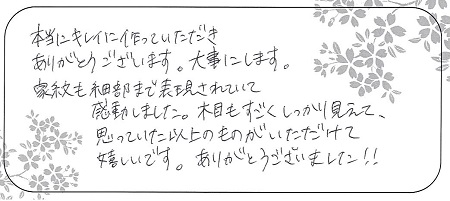 本当にキレイに作っていただき
ありがとうございます。大事にします。
家紋も細部まで表現されていて
感動しました。木目もすごくしっかり見えて、
思っていた以上のものがいただけて
嬉しいです。ありがとうございました!!